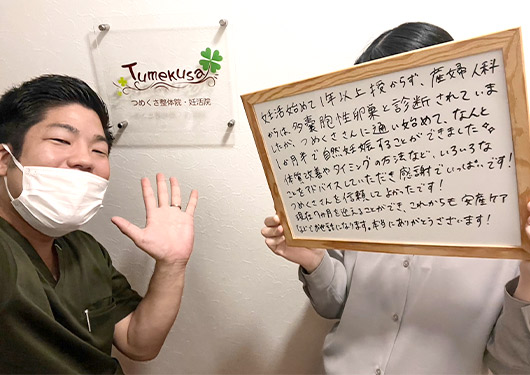 Tumekusa
つめくさ整体院・妊活院
妊活始めて1年以上授からず、産婦人科
からは、多嚢胞性卵巣と診断されていま
したが、つめくささんに通い始めて、なんと
1か月半で自然妊娠することができました
体質改善やタイミングの方法など、いろいろな
ことをアドバイスしていただき感謝でいっぱいです!
つめくさんを信頼してよかったです!
現在7か月を迎えることができ、これからも安産ケア
などでお世話になります。本当にありがとうございます!